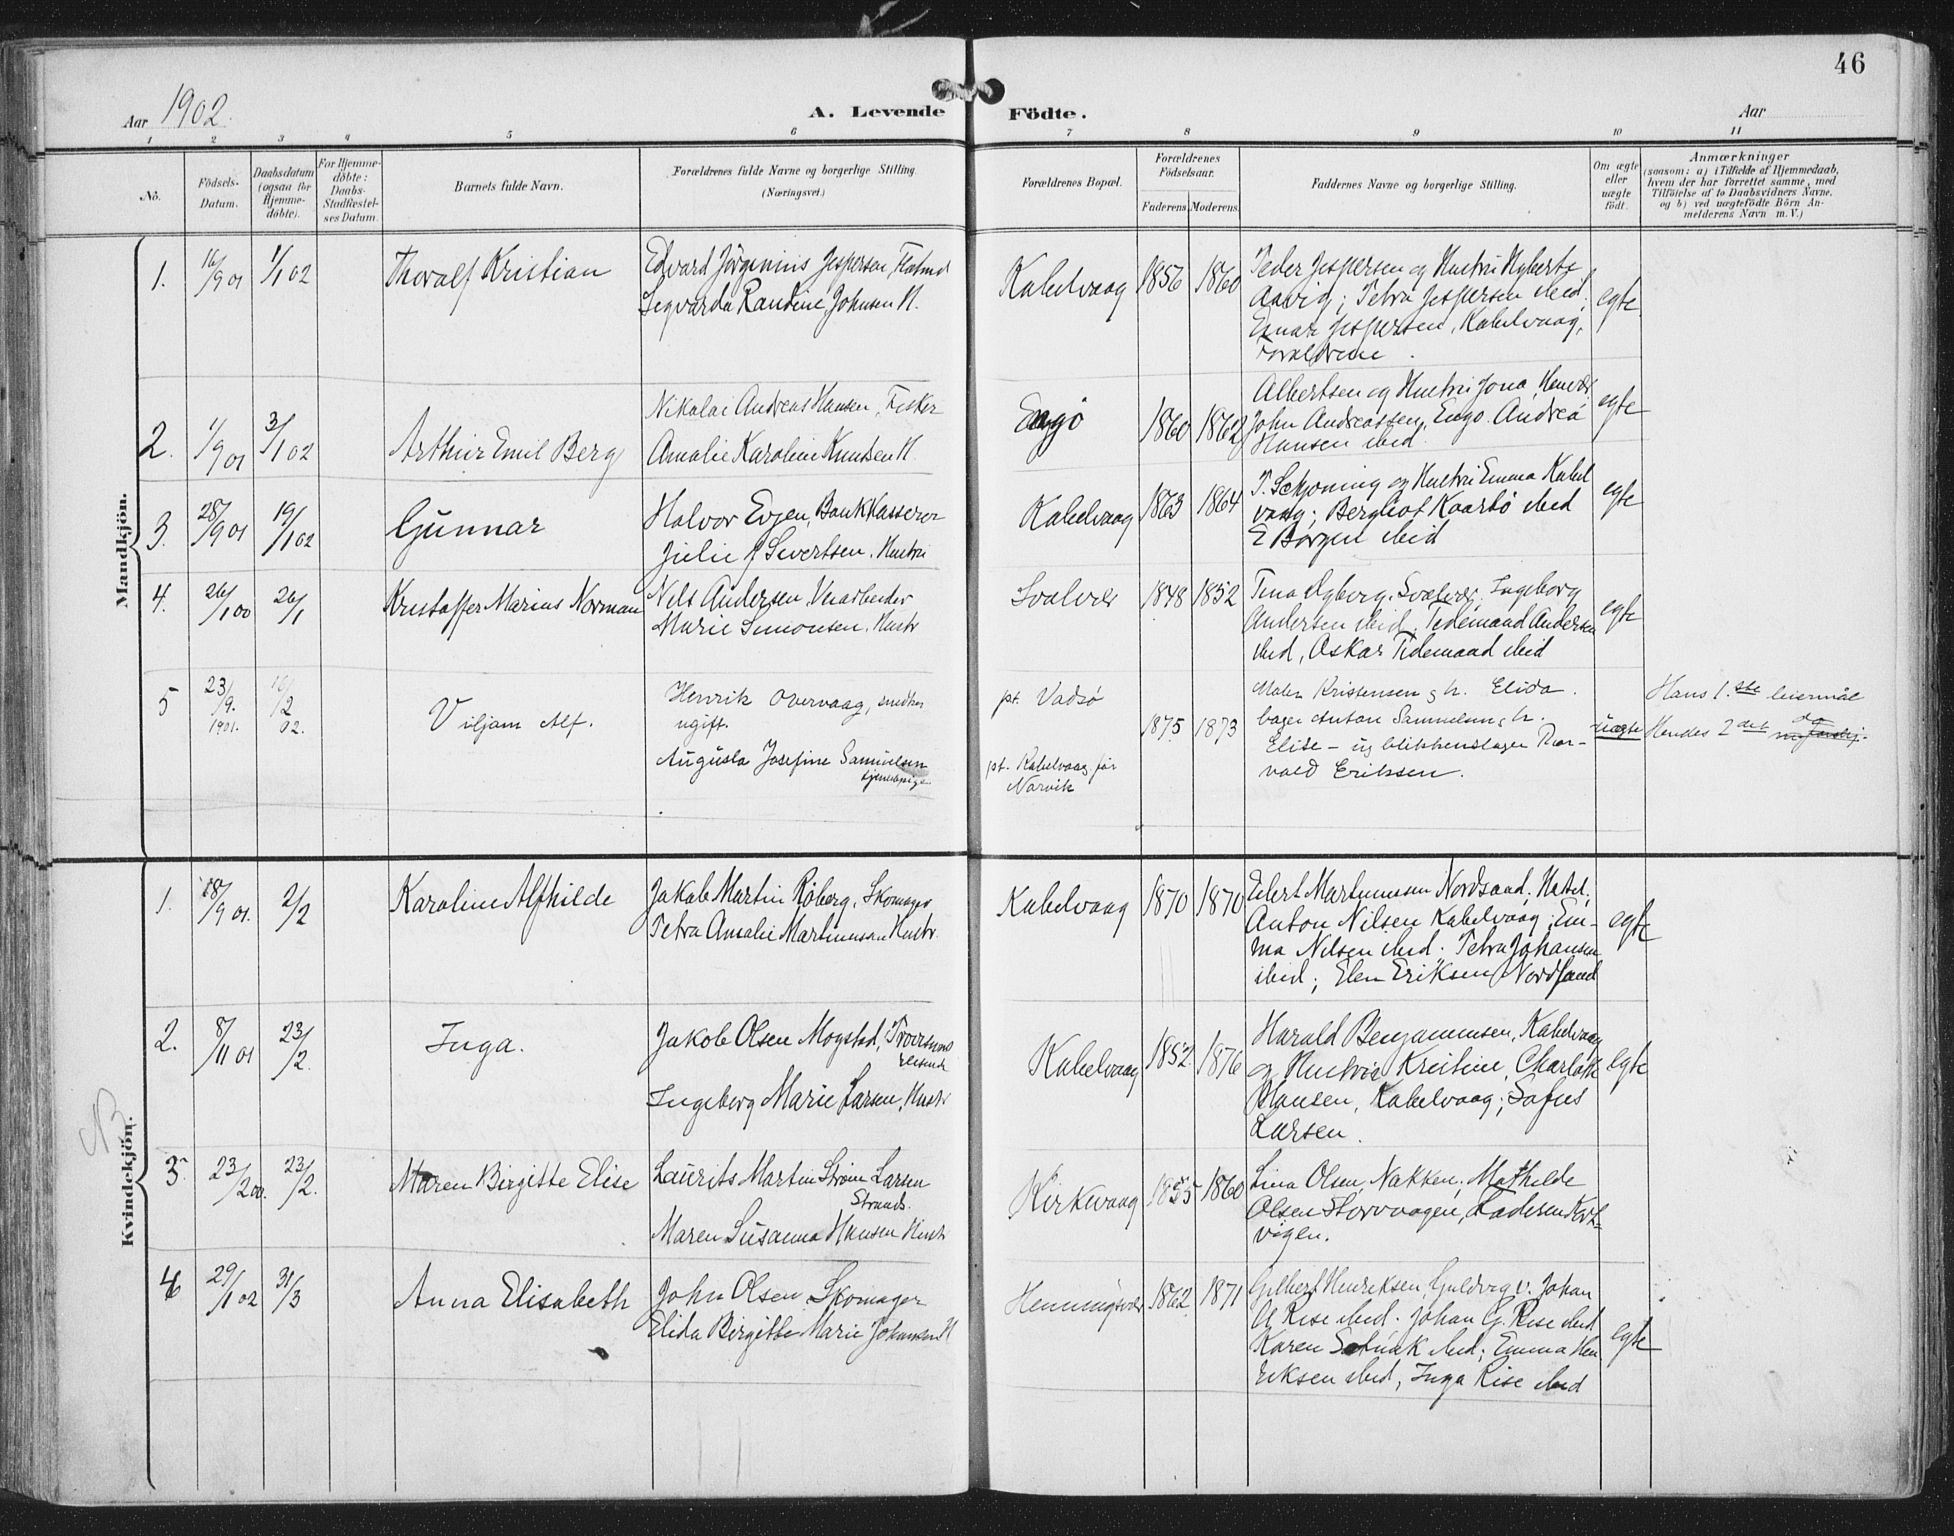 46
Aar 1902.
A. Levende Födte.
Aar
1 2 3 4 5 6 7 8 9 10 11
No.
Födsels-Datum.
Daabsdatum (ogsaa for Hjemme-döbte).
For Hjemme-döbte: Daabs-Stadfæstel-ses Datum
Barnets fulde Navn.
Forældrenes fulde Navne og borgerlige Stilling. (Næringsvei.)
Forældrenes Bopæl.
Forældrenes Födselsaar.
Faderens. Moderens.
Faddernes Navne og borgerlige Stilling.
Om ægte eller uægte födt.
Anmærkninger
(saasom: a) i Tilfælde af Hjemmedaab,
hvem der har forrettet samme, med
Tilföielse af to Daabsvidners Navne.
og b) ved uægtefödte Börn An-
melderens Navn m. V.)
Mandkjön.
1. 16/9 01 1/1 02 Thoralf Kristian
Edvard Jörginius Jespersen,
Segvarda Randine Johnsen H.
Kabelvaag 1856 1860
Peder Jespersen og Hustru
Petra Jespersen ibid.
Einar Jespersen, Kabelvaag,
Forældrene.
egte
2. 1/9 01 3/1 02 Arthur Emil Berg
Nikolai Andreas Hansen, Fisker
Amalie Karoline Knudsen H.
Engö 1860 1862
Albertsen og Hustru Jona,
John Andreassen, Engö. Andrea
Hansen ibid
egte
3. 28/9 01 19/1 02 Gunnar
Halvor Evjen, Bankkasserer
Julie J Sivertsen, Hustru
Kabelvaag 1863 1864
Schjoning og Hustru Emma Kabel
vaag; Bergliot Kaarbö ibid
E Borgen ibid
egte
4. 26/1 00 26/1 Kristoffer Marius Norman
Nils Andersen,
Marie Simonsen, Hustr
Svolvær 1848 1852
Tina Nyberg, Svolvær, Ingeborg
Andersen ibid, Tidemand Andersen
ibid, Oskar Tidemand ibid
egte
5 23/9. 1901. 16/2 02. Viljam Alf.
Henrik Overvaag, snedker
ugift.
Augusta Josefine Samuelsen
tjenestepige
pt. Vadsö
pt. Kabelvaag før
Narvik
1875 1873
Kristensen g h. Elida.
bager Anton Samuelsen g h.
Elise – og blikkenslager Thor-
vald Eriksen.
uægte
Hans 1.ste leiermål
Hendes 2det do
Kvindekjön.
NB
1. 18/9 01. 2/2 Karoline Alfhilde
Jakob Martin Röberg, Skomager
Petra Amalie Martinusen Hustr
Kabelvaag 1870 1870
Edert Martinusen Nordsand,
Anton Nilsen Kabelvaag; Em-
ma Nilsen ibid. Petra Johansen
ibid; Elen Eriksen Nordsand
egte
2. 8/11 01 23/2. Inga.
Jakob Olsen Mogstad,
Ingeborg Marie Larsen, Hustr
Kabelvaag 1852 1876
Harald Benjaminsen, Kabelvaag
og Hustru Kristine, Charlotte
Hansen, Kabelvaag; Sofus
Larsen.
egte
3. 23/2 00. 23/2. Maren Birgitte Elise
Laurits Martin Ström Larsen
Strands.
Maren Susanna Hansen Hustr
Kirkevaag 1855 1860
Lina Olsen, Nakken; Mathilde
Olsen Storvaagen,
vigen.
4 29/1 02 31/3 Anna Elisabeth
John Olsen, Skomager
Elida Birgitte Marie Johansen H
Henningsvær 1862 1871
Gilbert Henriksen, Johan
Rise ibid. Johan G. Rise ibid
Karen ibid; Emma Hen
riksen ibid, Inga Rise ibid
egte